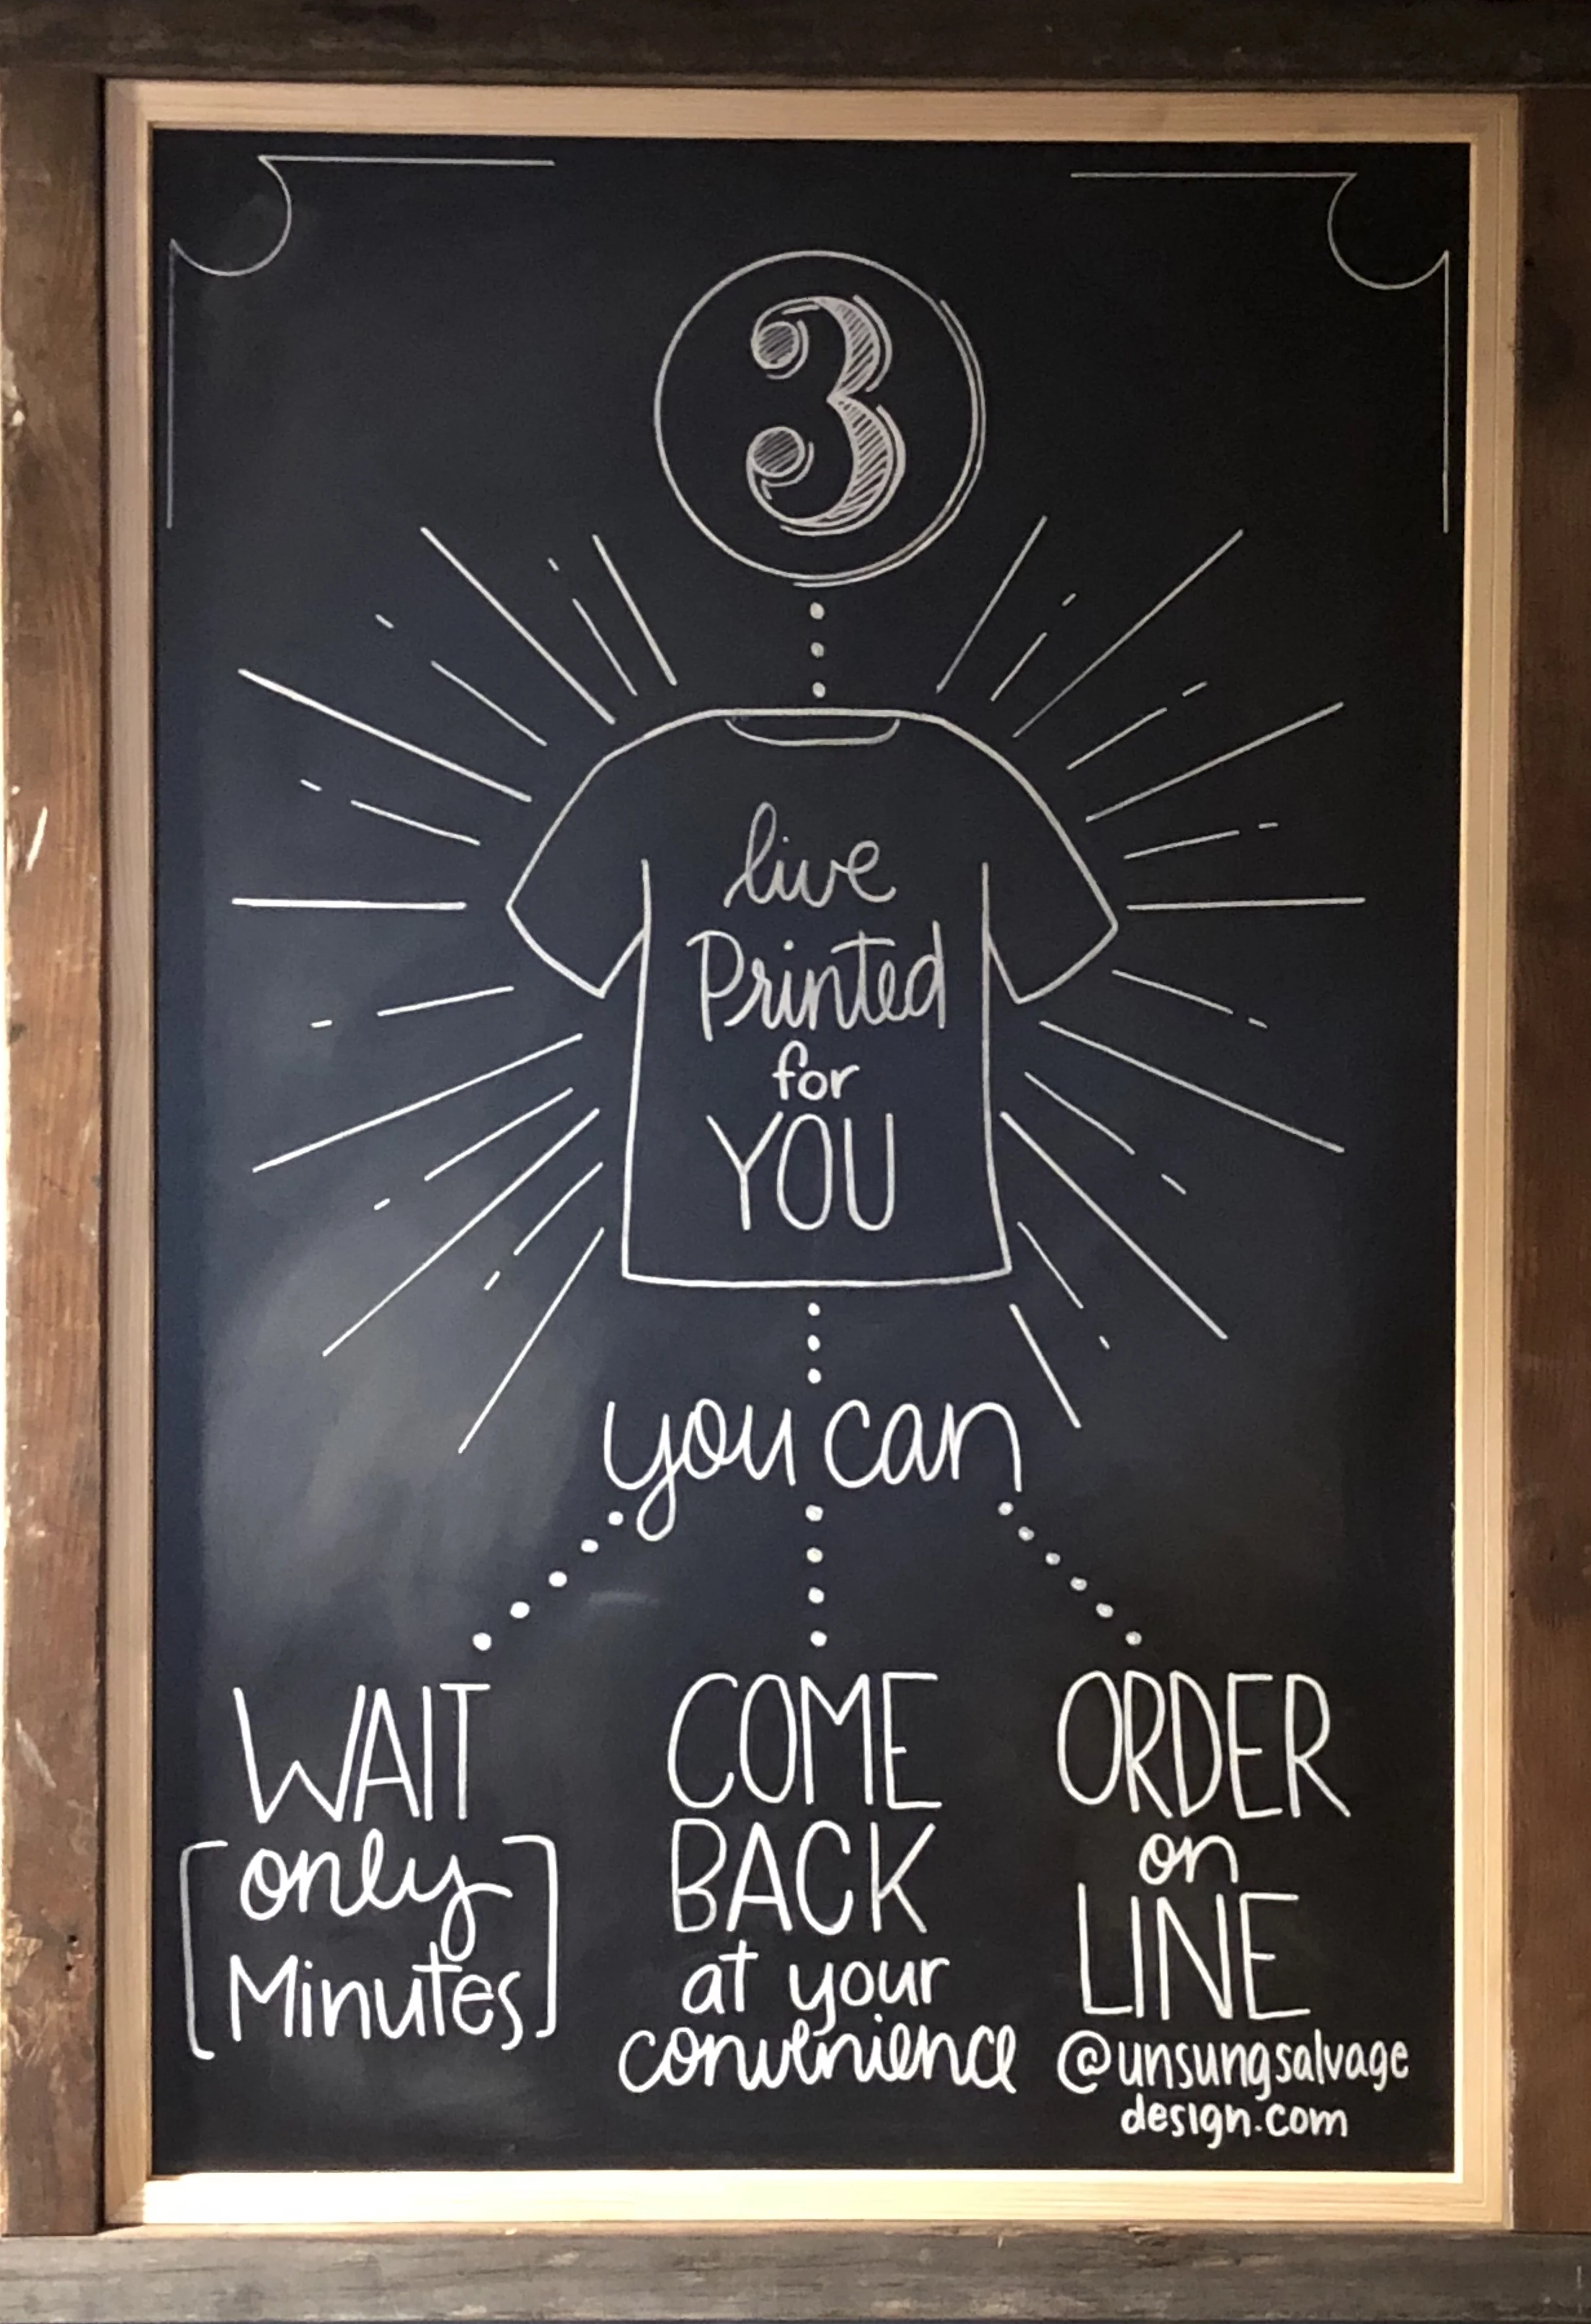 3
live
Printed
for
YOU
you can
WAIT
[only
Minutes]
COME
BACK
at your
convenience
ORDER
on
LINE
@unsungsalvage
design.com